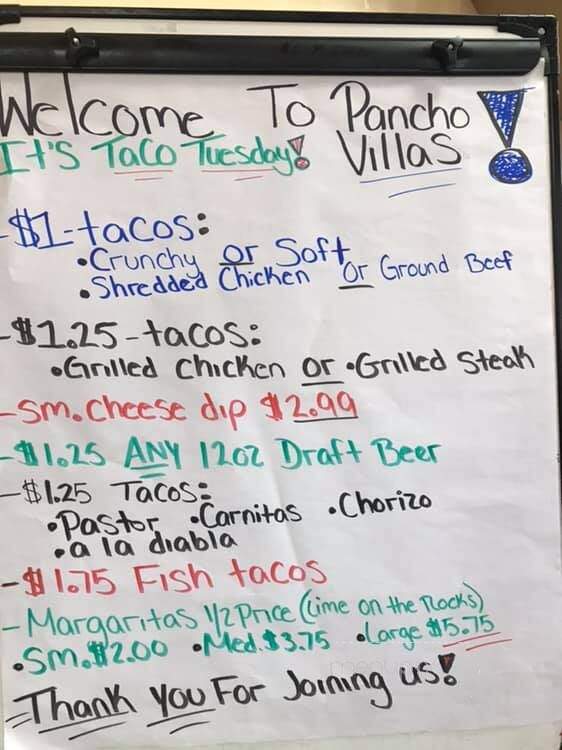 Welcome To Pancho Villas!
It's Taco Tuesday!
-$1-tacos:
•Crunchy or Soft
•Shredded Chicken or Ground Beef
-$1.25-tacos:
•Grilled Chicken or •Grilled Steak
-Sm. Cheese dip $2.99
-$1.25 ANY 12oz Draft Beer
-$1.25 Tacos:
•Pastor •Carnitas •Chorizo
•a la diabla
-$1.75 Fish tacos
-Margaritas 1/2 Price (Lime on the Rocks)
•Sm. $2.00 •Med. $3.75 •Large $5.75
Thank You For Joining us!